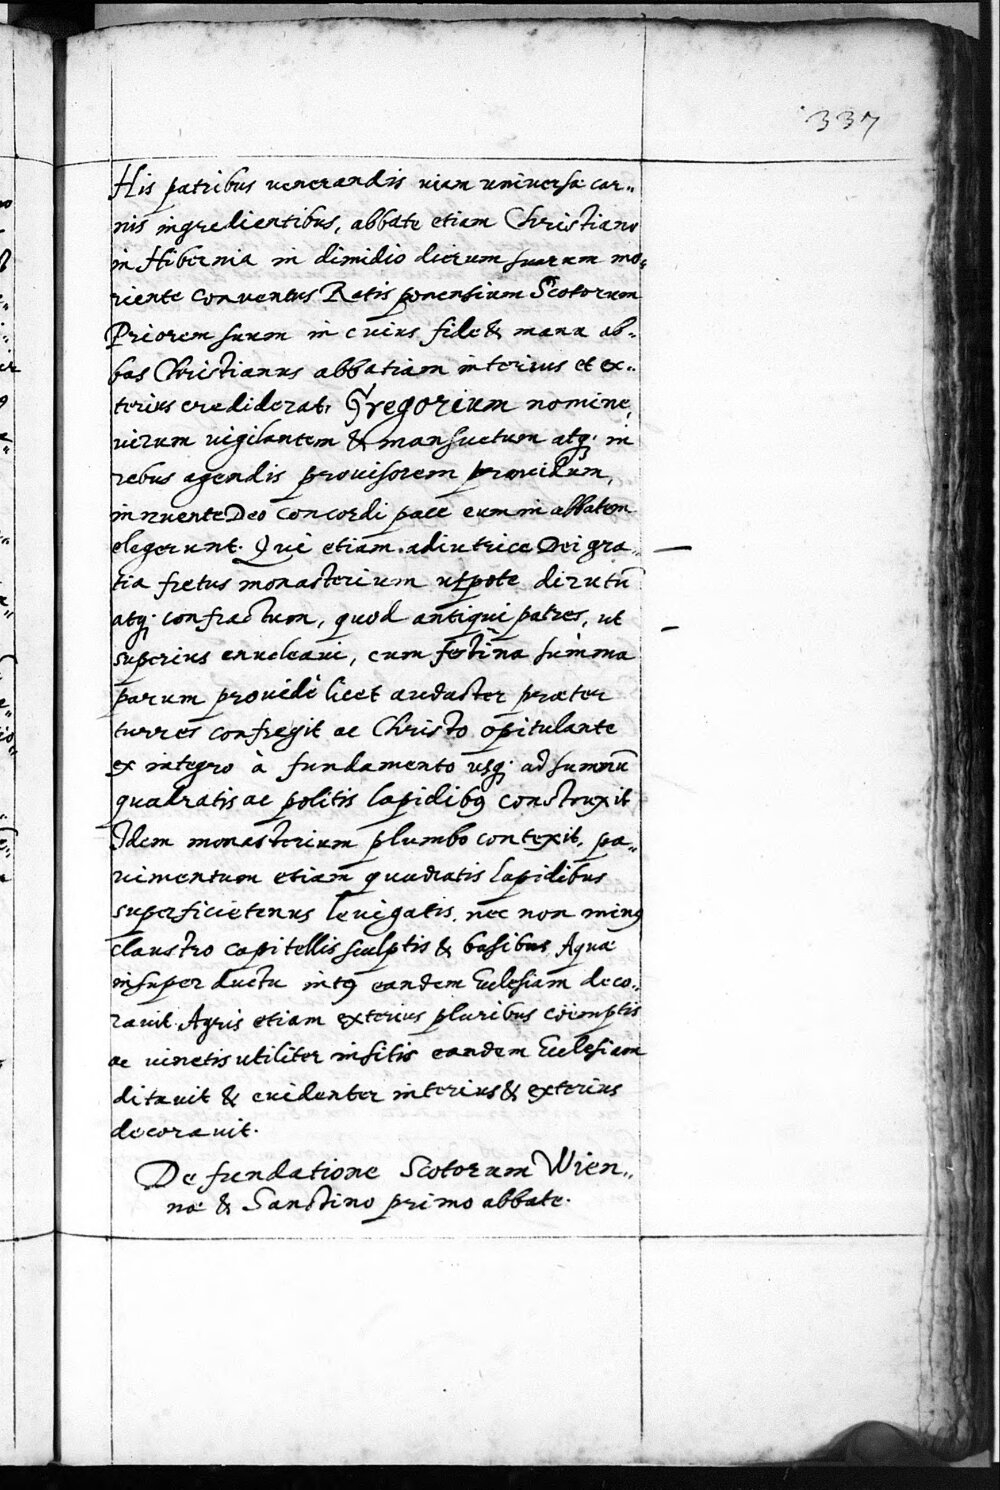 337
His patribus uenerandis uiam uniuersæ car„
nis ingredientibus, abbate etiam Christiano
in Hibernia in dimidio dierum suarum mo„
riente conuentus Ratisponensium Scotorum
Priorem suum in cuius fide & manu ab„
bas Christianus abbatiam interius et ex„
terius crediderat, Gregorium nomine,
uirum uigilantem & mansuetum atq; in
rebus agendis prouisorem prouidum,
innuente Deo concordi pace eum in abbatem
elegerunt. Qui etiam adiutrice Dei gra„
tia fretus monasterium utpote dirutũ
atq; confractum, quod antiqui patres, ut
superius enucleaui, cum festina summa
parum prouidè licet audacter præter
turres confregit ac Christo opitulante
ex integro à fundamento usq; ad summũ
quadratis ac politis lapidibꝯ construxit
Idem monasterium plumbo contexit, pa„
uimentum etiam quadratis lapidibus
superficietenus leuigatis, nec non minꝯ
claustro capitellis sculptis & basibus Aquæ
insuper ductu intꝯ eandem Ecclesiam deco„
rauit. Agris etiam exterius pluribus coemptis
ac uinetis utiliter insitis eandem Ecclesiam
ditauit & euidenter interius & exterius
decorauit.
De fundatione Scotorum Wien„
næ & Sanctino primo abbate.